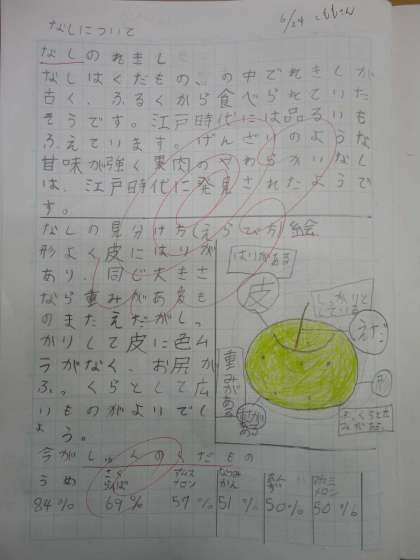 なしについて
6/24
なしのれきし
なしはくだもの、の中でれきしが
古く、ふるくから食べられていた
そうです。江戸時代には品るいも
ふえています。げんざいのような
甘味が強く果肉のやわらかいなし
は、江戸時代に発見されたようで
す。
なしの見分け方(えらび方) 絵
形よく皮にはりが
あり、同じ大きさ
なら重みがあるも
のまたえだがしっ
かりして皮に色ム
ラがなく、お尻が
ふっくらとして広
いものがよいでし
ょう。
はりがある
皮
しっかりと
している
えだ
形
重みがある
ふっくらとした
みがある
今がしゅんのくだもの
うめ
84%
さくらんぼ
69%
アンス
メロン
57%
なつみ
かん
51%
50%
メロン
50%